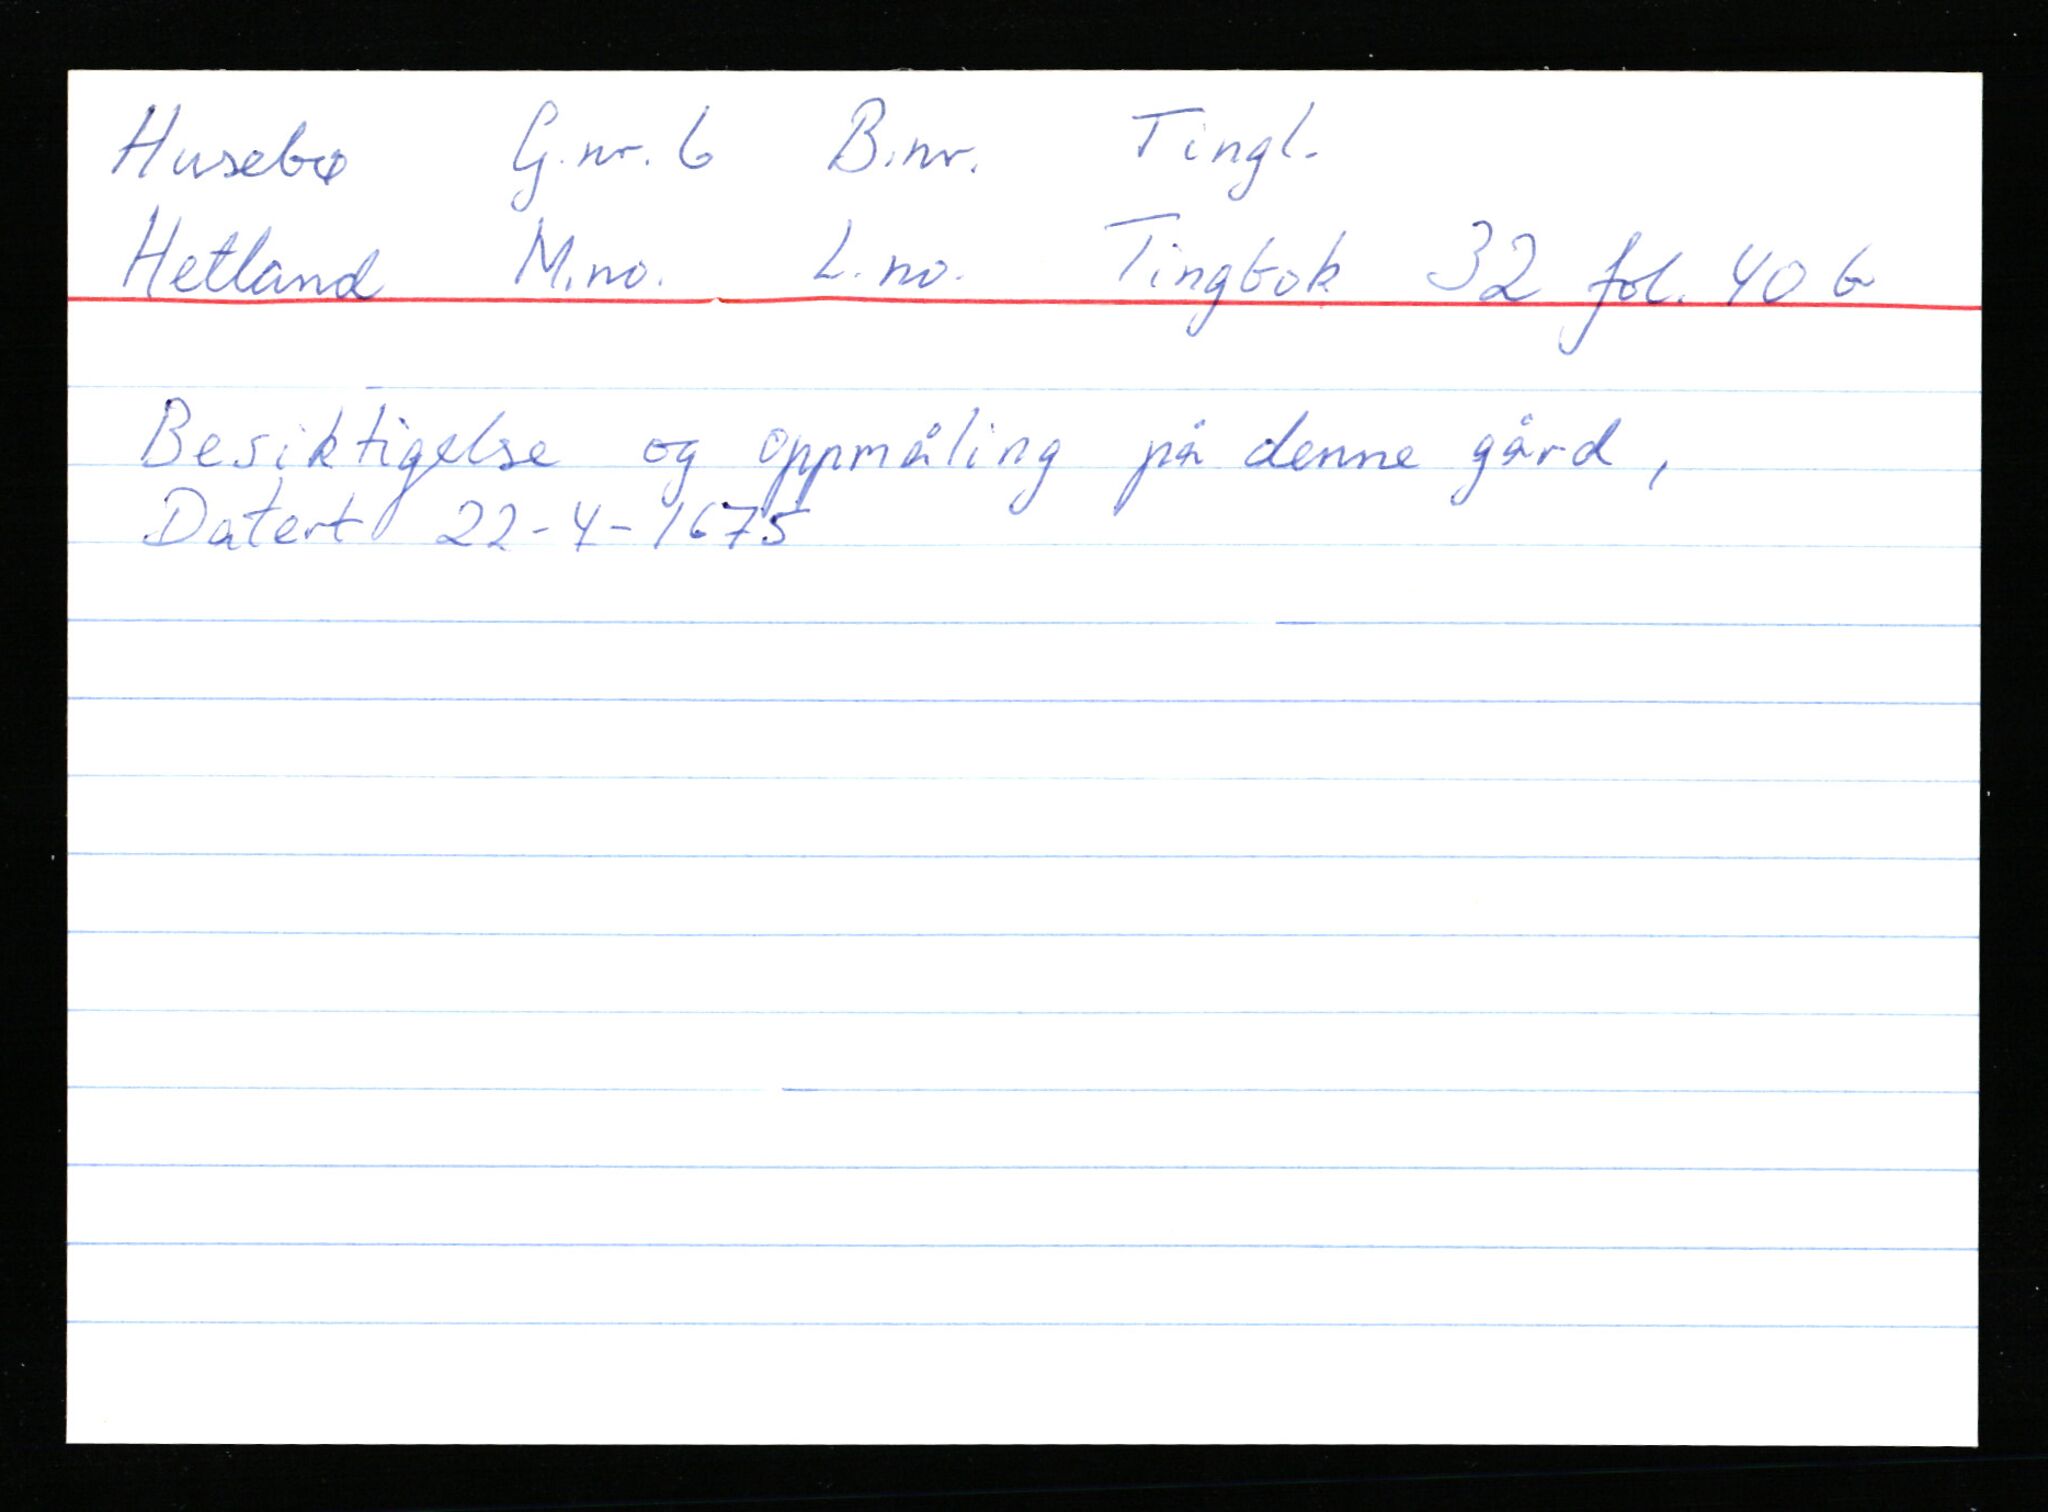 Husebø G.nr. 6 B.nr. Tingl.
Hetland M.no. L.no. Tingbok 32 fol. 40 b
Besiktigelse og oppmåling på denne gård,
Datert 22-4-1675